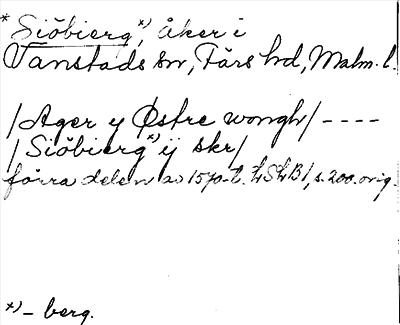 * Siöbierg *), åker i
Vanstads sn, Färs hd, Malm. l.
/Ager y Østre wongh/ ----
/Siöbierg *) ij skr/
förra delen av 1570-t. LSLB1, s. 200. orig.
*) - berg.